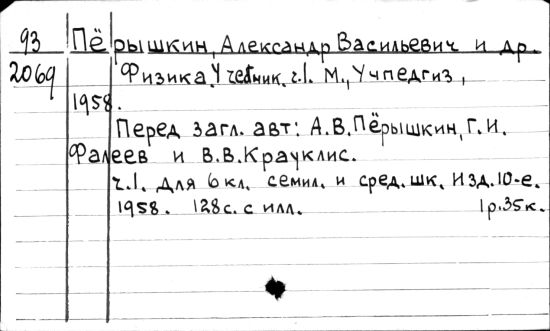 93 Пёрышкин, Александр Васильевич и др.
2069 Физика. Учебник. ч.1. М., Учпедгиз,
1958.
Перед загл. авт: А.В.Пёрышкин, Г.И.
Фалеев и В.В.Крауклис.
ч.1. Для 6 кл. семил. и сред. шк. Изд. 10-е.
1958. 128с. с илл. 1р.35к.